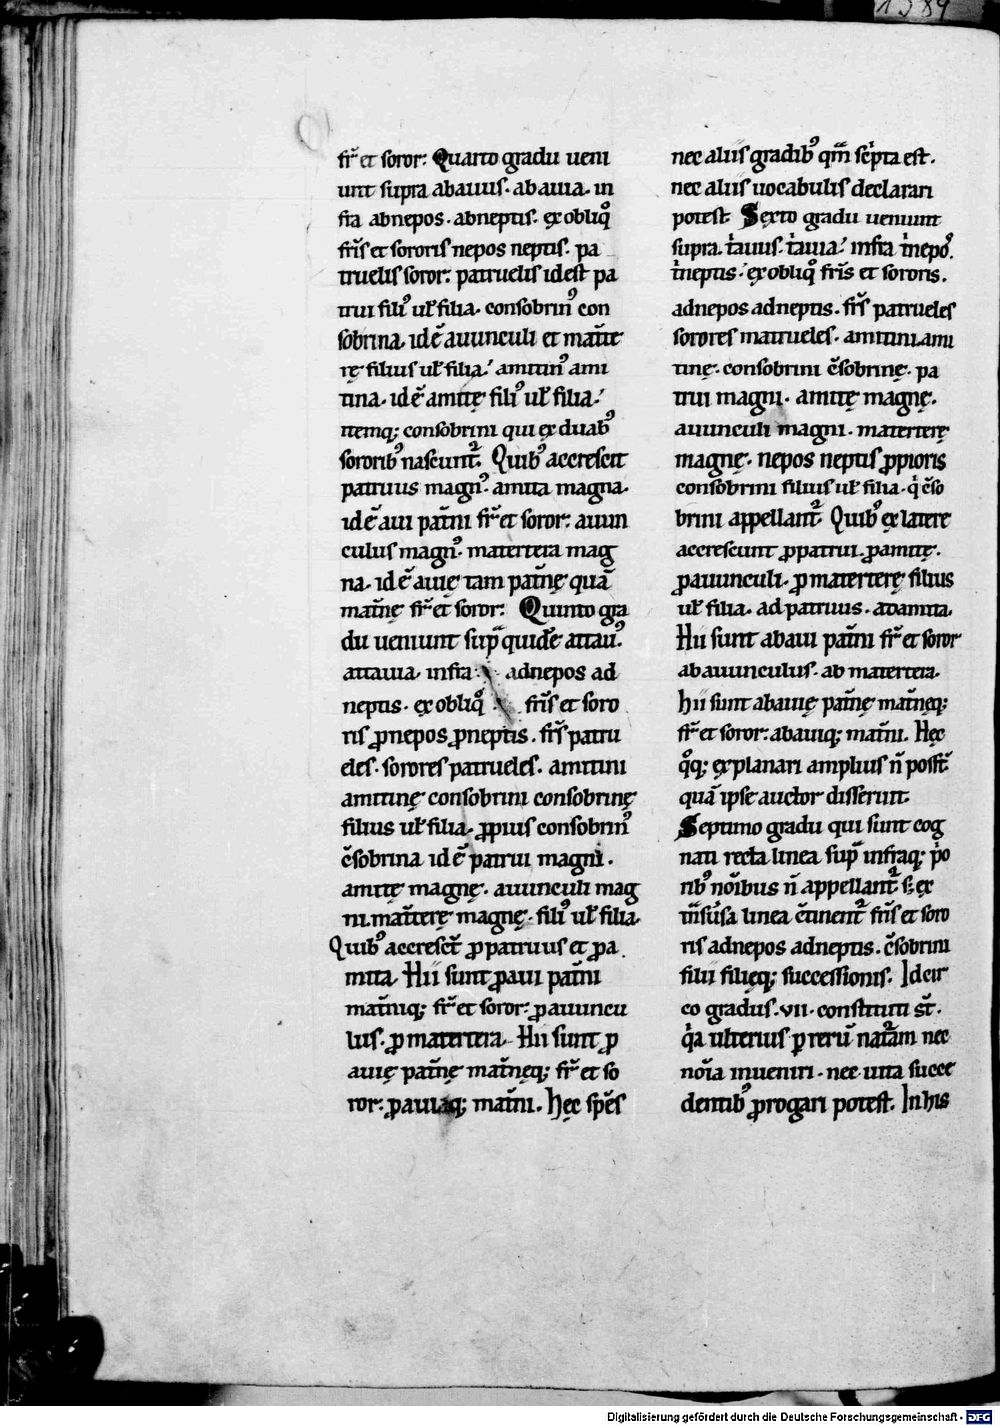 fr̄ et soror: Quarto gradu ueni
unt supra abauus· abauia· in
fra abnepos· abneptis· ex obliqͦ
frīs et sororis nepos neptis· pa
truelis soror: patruelis id est pa
trui filiꝰ ul̄ filia· consobrinꝰ con
sobrina· id ē auunculi et mat̄te
rę filius ul̄ filia· amitinꝰ ami
tina· id ē amitę filiꝰ ul̄ filia·
itemq; consobrini qui ex duabꝰ
sororibꝰ nascunt᷑. Quibꝰ accrescit
patruus magnꝰ· amita magna·
id ē aui pat̄ni fr̄ et soror: auun
culus magnꝰ· matertera mag
na· id ē auię tam pat̄nę quā
mat̄nę fr̄ et soror: Quinto gra
du ueniunt sup̄ quidē attauꝰ.
attauia· infra: adnepos ad
neptis· ex obliqͦ frīs et soro
ris ꝓnepos ꝓneptis· fr̄s patru
eles· sorores patrueles· amitini
amitinę consobrini consobrinę
filius ul̄ filia· ꝓpius consobrinꝰ
c̄sobrina id ē patrui magni·
amitę magnę· auunculi mag
ni· mat̄terę magnę· filiꝰ ul̄ filia·
Quibꝰ accresct̄ ꝓpatruus et ꝓa
mita· Hii sunt ꝓaui pat̄ni
mat̄niq; fr̄ et soror: ꝓauuncu
lus· ꝓmatertera· Hii sunt ꝓ
auię pat̄nę mat̄nęq; fr̄ et so
ror: ꝓauiaq; mat̄ni. hęc spēs
nec aliis gradibꝰ qm̄ sc̄pta est.
nec aliis uocabulis declarari
potest Sexto gradu ueniunt
supra· t̍auus· t̍auia· infra t̍nepoꝰ.
t̍neptis· ex obliqͦ frīs et sororis.
adnepos adneptis· fr̄s patrueles
sorores matrueles· amitini ami
tinę· consobrini c̄sobrinę· pa
trui magni· amitę magnę·
auunculi magni· materterę
magnę· nepos neptis ꝓpioris
consobrini filius ul̄ filia· q̍ c̄so
brini appellant᷑. Quibꝰ ex latere
accrescunt ꝓpatrui· ꝓamitę·
ꝓauunculi· ꝓmaterterę filius
ul̄ filia· ad patruus· adamita·
Hii sunt abaui pat̄ni fr̄ et soror
abauunculus· ab matertera·
hii sunt abauię pat̄nę mat̄nęq;
fr̄ et soror: abauiq; mat̄ni. Hęc
qͦq; explanari amplius n̄ posst̄
quā ipse auctor disserunt.
Septimo gradu qui sunt cog
nati recta linea sup̄ infraq; p̍o
ribꝰ noībus n̄ appellant᷑ s; ex
tn̄suͥsa linea c̄tinent᷑ frīs et soro
ris adnepos adneptis· c̄sobrini
filii filięq; successionis. Idcir
co gradus· vii· constituti st̄·
q̍a ulterius ꝑ rerū nat᷑am nec
noīa inueniri· nec uita succe
dentibꝰ ꝓrogari potest. In his